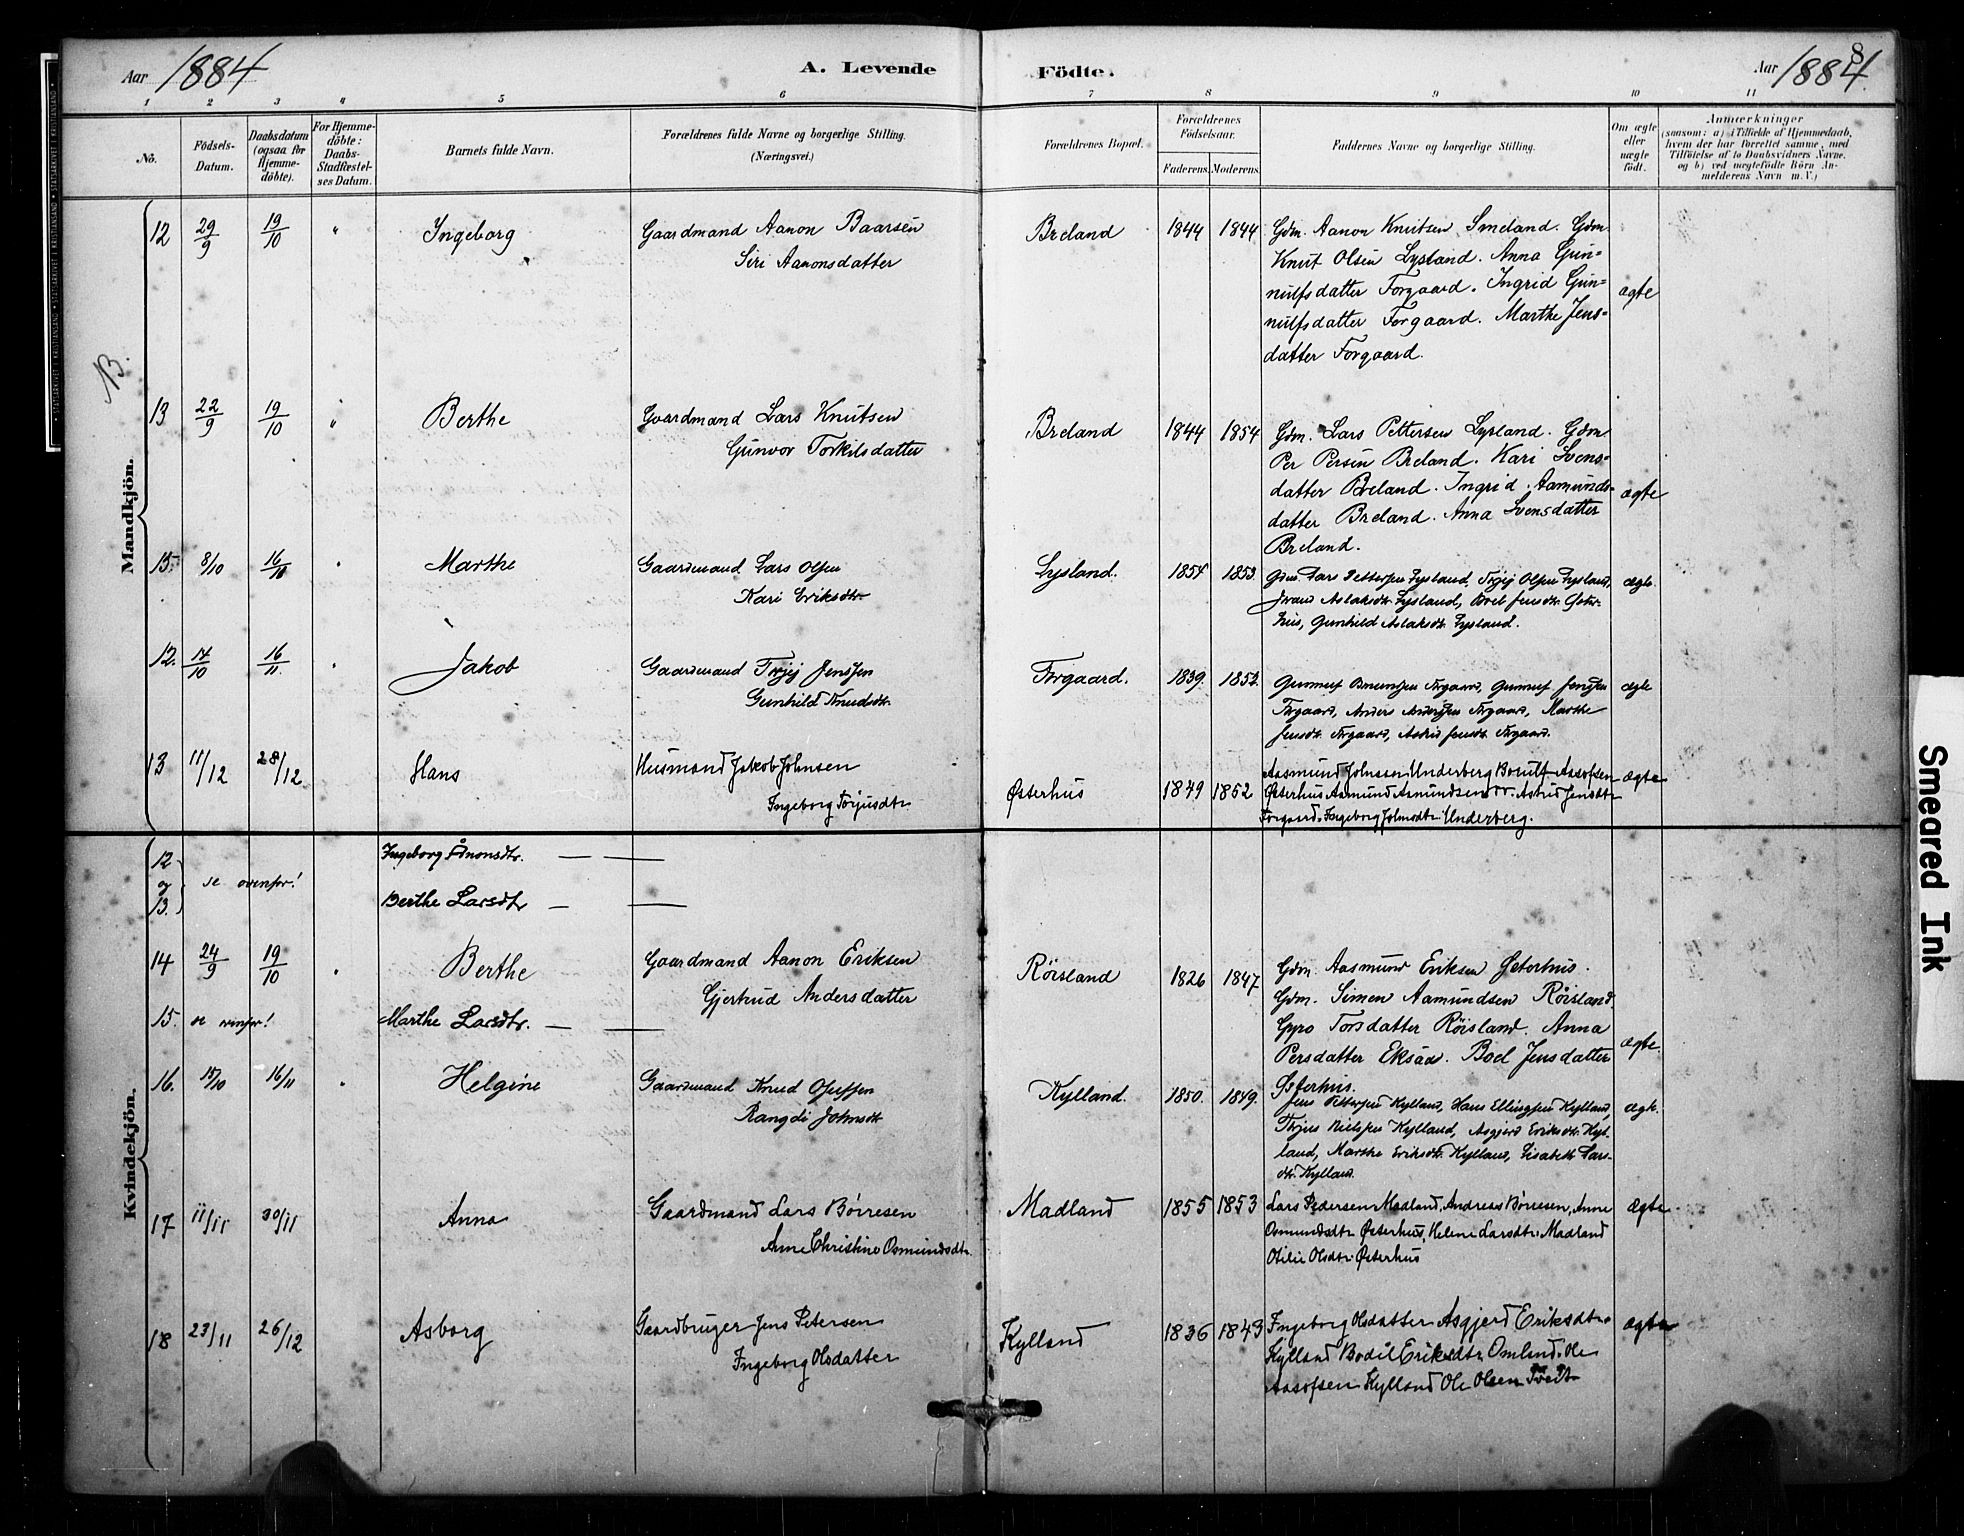 Aar 1884
A. Levende
Födte.
Aar 1884.
8
1 2 3 4 5 6 7 8 9 10 11
No.
Födsels-
Datum.
Daabsdatum
(ogsaa for
Hjemme-
döbte).
For Hjemme-
döbte:
Daabs-
Stadfæstel-
ses Datum.
Barnets fulde Navn.
Forældrenes fulde Navne og borgerlige Stilling.
(Næringsvei.)
Forældrenes Bopæl.
Forældrenes
Födselsaar.
Faderens. Moderens.
Faddernes Navne og borgerlige Stilling.
Om ægte
eller
uægte
födt.
Anmærkninger
(saasom: a) i Tilfælde af Hjemmedaab,
hvem der har forrettet samme, med
Tilföielse af to Daabsvidners Navne,
og b) ved uægtefödte Börn An-
melderens Navn m. V.)
NB.
Mandkjön.
12 29/9 19/10 " Ingeborg Gaardmand Aanon Baarsen
Siri Aanonsdatter
Breland 1844 1844 Gdm. Aanon Knutsen Smeland. Gdm.
Knut Olsen Lysland. Anna Gun=
nulfsdatter Forgaard. Ingrid Gun=
nulfsdatter Forgaard. Marthe Jens=
datter Forgaard.
ægte
13 22/9 19/10 " Berthe Gaardmand Lars Knutsen
Gunvor Torkilsdatter
Breland 1844 1854 Gdm. Lars Pettersen Lysland. Gdm.
Per Persen Breland. Kari Svens=
datter Breland. Ingrid Aamunds=
datter Breland. Anna Svensdatter
Breland.
ægte
15. 8/10 16/11 " Marthe Gaardmand Lars Olsen
Kari Eriksdtr.
Lysland. 1854 1853. Gdm. Lars Pettersen Lysland, Terjej Olsen Lysland,
Aslaksdtr. Lysland, Boel Jensdtr. Øster-
hus, Gunhild Aslaksdtr. Lysland.
ægte.
12. 17/10 16/11. " Jakob Gaardmand Terjej Jenssen
Gunhild Knudsdtr.
Forgaard. 1839. 1852. Gunnulf Forgaard, Gunnulf Jenssen
Forgaard, Anders Anderssen Forgaard, Marthe
Jensdtr. Forgaard, Astrid Jensdtr. Forgaard.
ægte
13 11/12 28/12 Hans Husmand Jakob Johnsen
Ingeborg Torjusdtr.
Østerhus 1849 1852 Aasmund Johnsen Underberg Bonulf Aasofsen
Østerhus Aamund Aamundsen Astrid Jensdtr.
Forgaard. Ingeborg Johnsdtr. Underberg.
ægte
Kvindekjön.
12
og
13. se ovenfor!
Ingeborg Ånonsdtr. — —
Berthe Larsdtr — —
14 24/9 19/10 " Berthe Gaardmand Aanon Eriksen
Gjertrud Andersdatter
Röisland 1826 1847 Gdm. Aasmund Eriksen Østerhus.
Gdm. Simen Aamundsen Röisland
Gyro Torsdatter Röisland. Anna
Persdatter Eksaa. Boel Jensdatter
Østerhus.
ægte.
15. se ovenfor! Marthe Larsdtr. — —
16. 15/10 16/11 " Helgine Gaardmand Knud
Rangdi Johnsdtr
Kylland. 1850. 1849. Jens Petersen Kylland, Hans Ellingsen Kylland,
Terjus Nielsen Kylland, Asgjerd Eriksdtr. Kyl-
land, Marthe Eriksdtr. Kylland, Lisabeth Lars-
dtr. Kylland.
ægte.
17 11/11 30/11 Anna Gaardmand Lars Börresen
Anne Christine Osmundsdtr.
Madland 1855 1853 Lars Pedersen Madland, Andreas Börresen, Anne
Osmundsdtr. Østerhus, Helene Larsdtr. Madland
Otilie Olsdtr. Østerhus
ægte
18 23/11 26/12 Asborg Gaardbruger Jens Petersen
Ingeborg Olsdatter
Kylland 1836 1843 Ingeborg Olsdatter Asgjerd Eriksdtr.
Kylland Bodil Eriksdtr Omland. Ole
Aasofsen Kylland Ole Olsen Tvedt
ægte
Smeared Ink